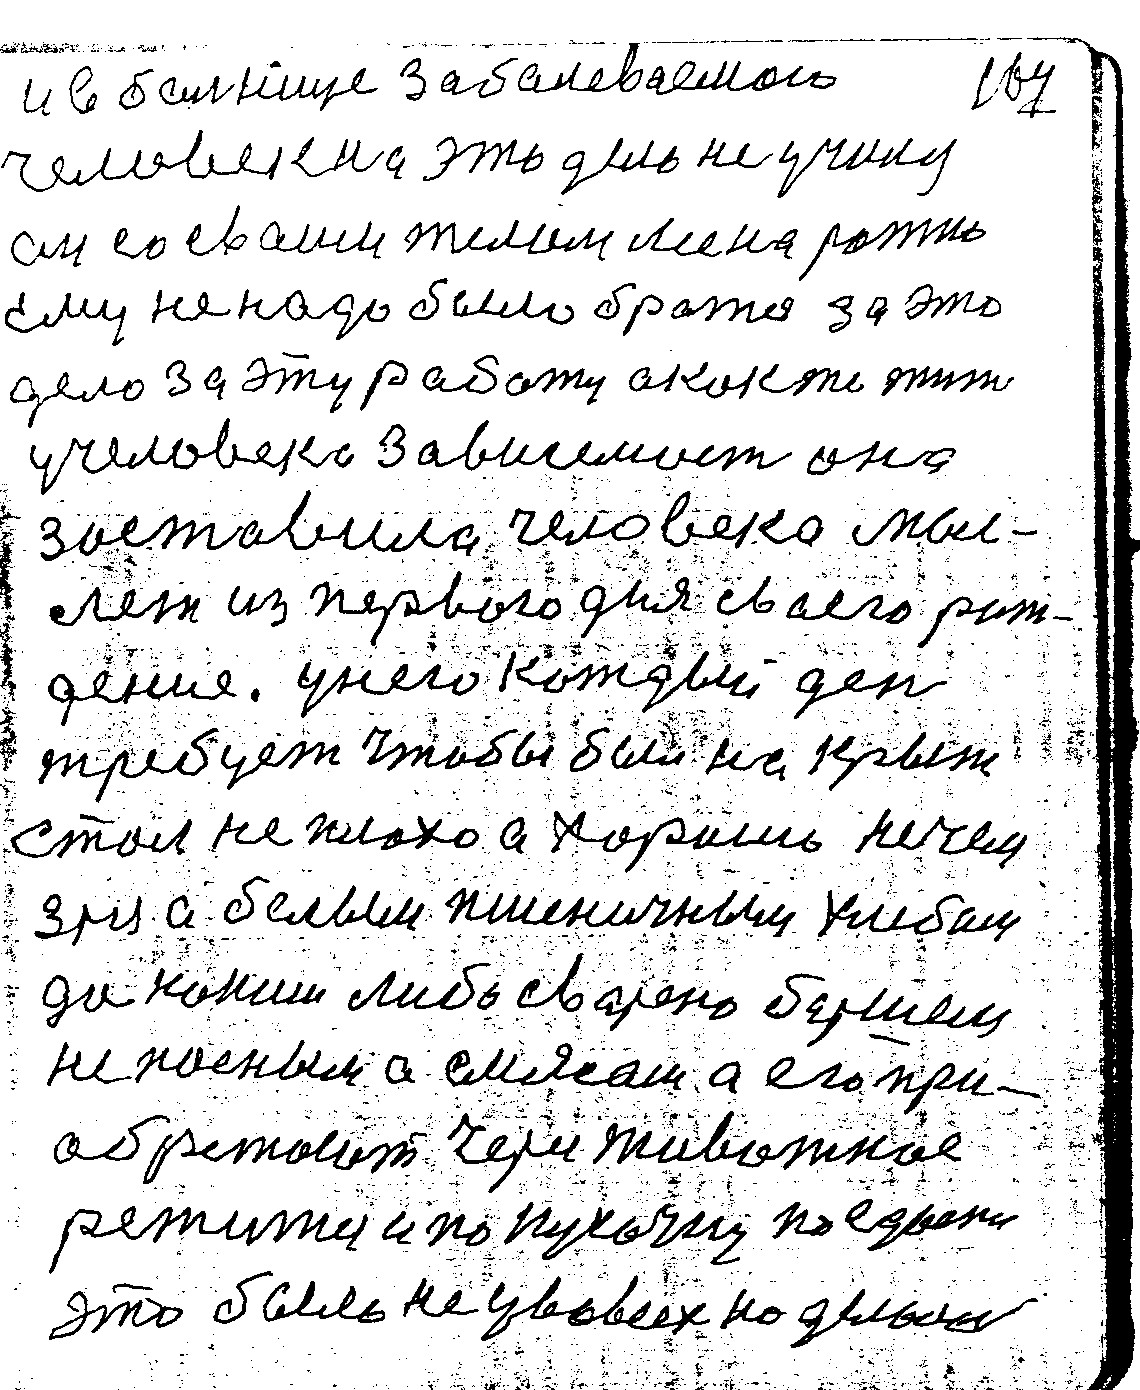 и в балнице забалеваемого 167
человек на это дель не учили
он со сваим телом лена ротно
ему не надо было братя за это
дело за эту работу а кокже жит
учеловека зависемост она
зоставила человека мыс-
лет из первого дня своего рож-
дение. унего Кождый ден
требует чтобы был на крыт
стол не плохо а хорошо нечем
зря а белым пшеничным хлебом
да каким либо сварено боршем
не посным а смясам а его при-
обретают через животное
режиту и по кусочку поедаеш
это было не у вовсех но